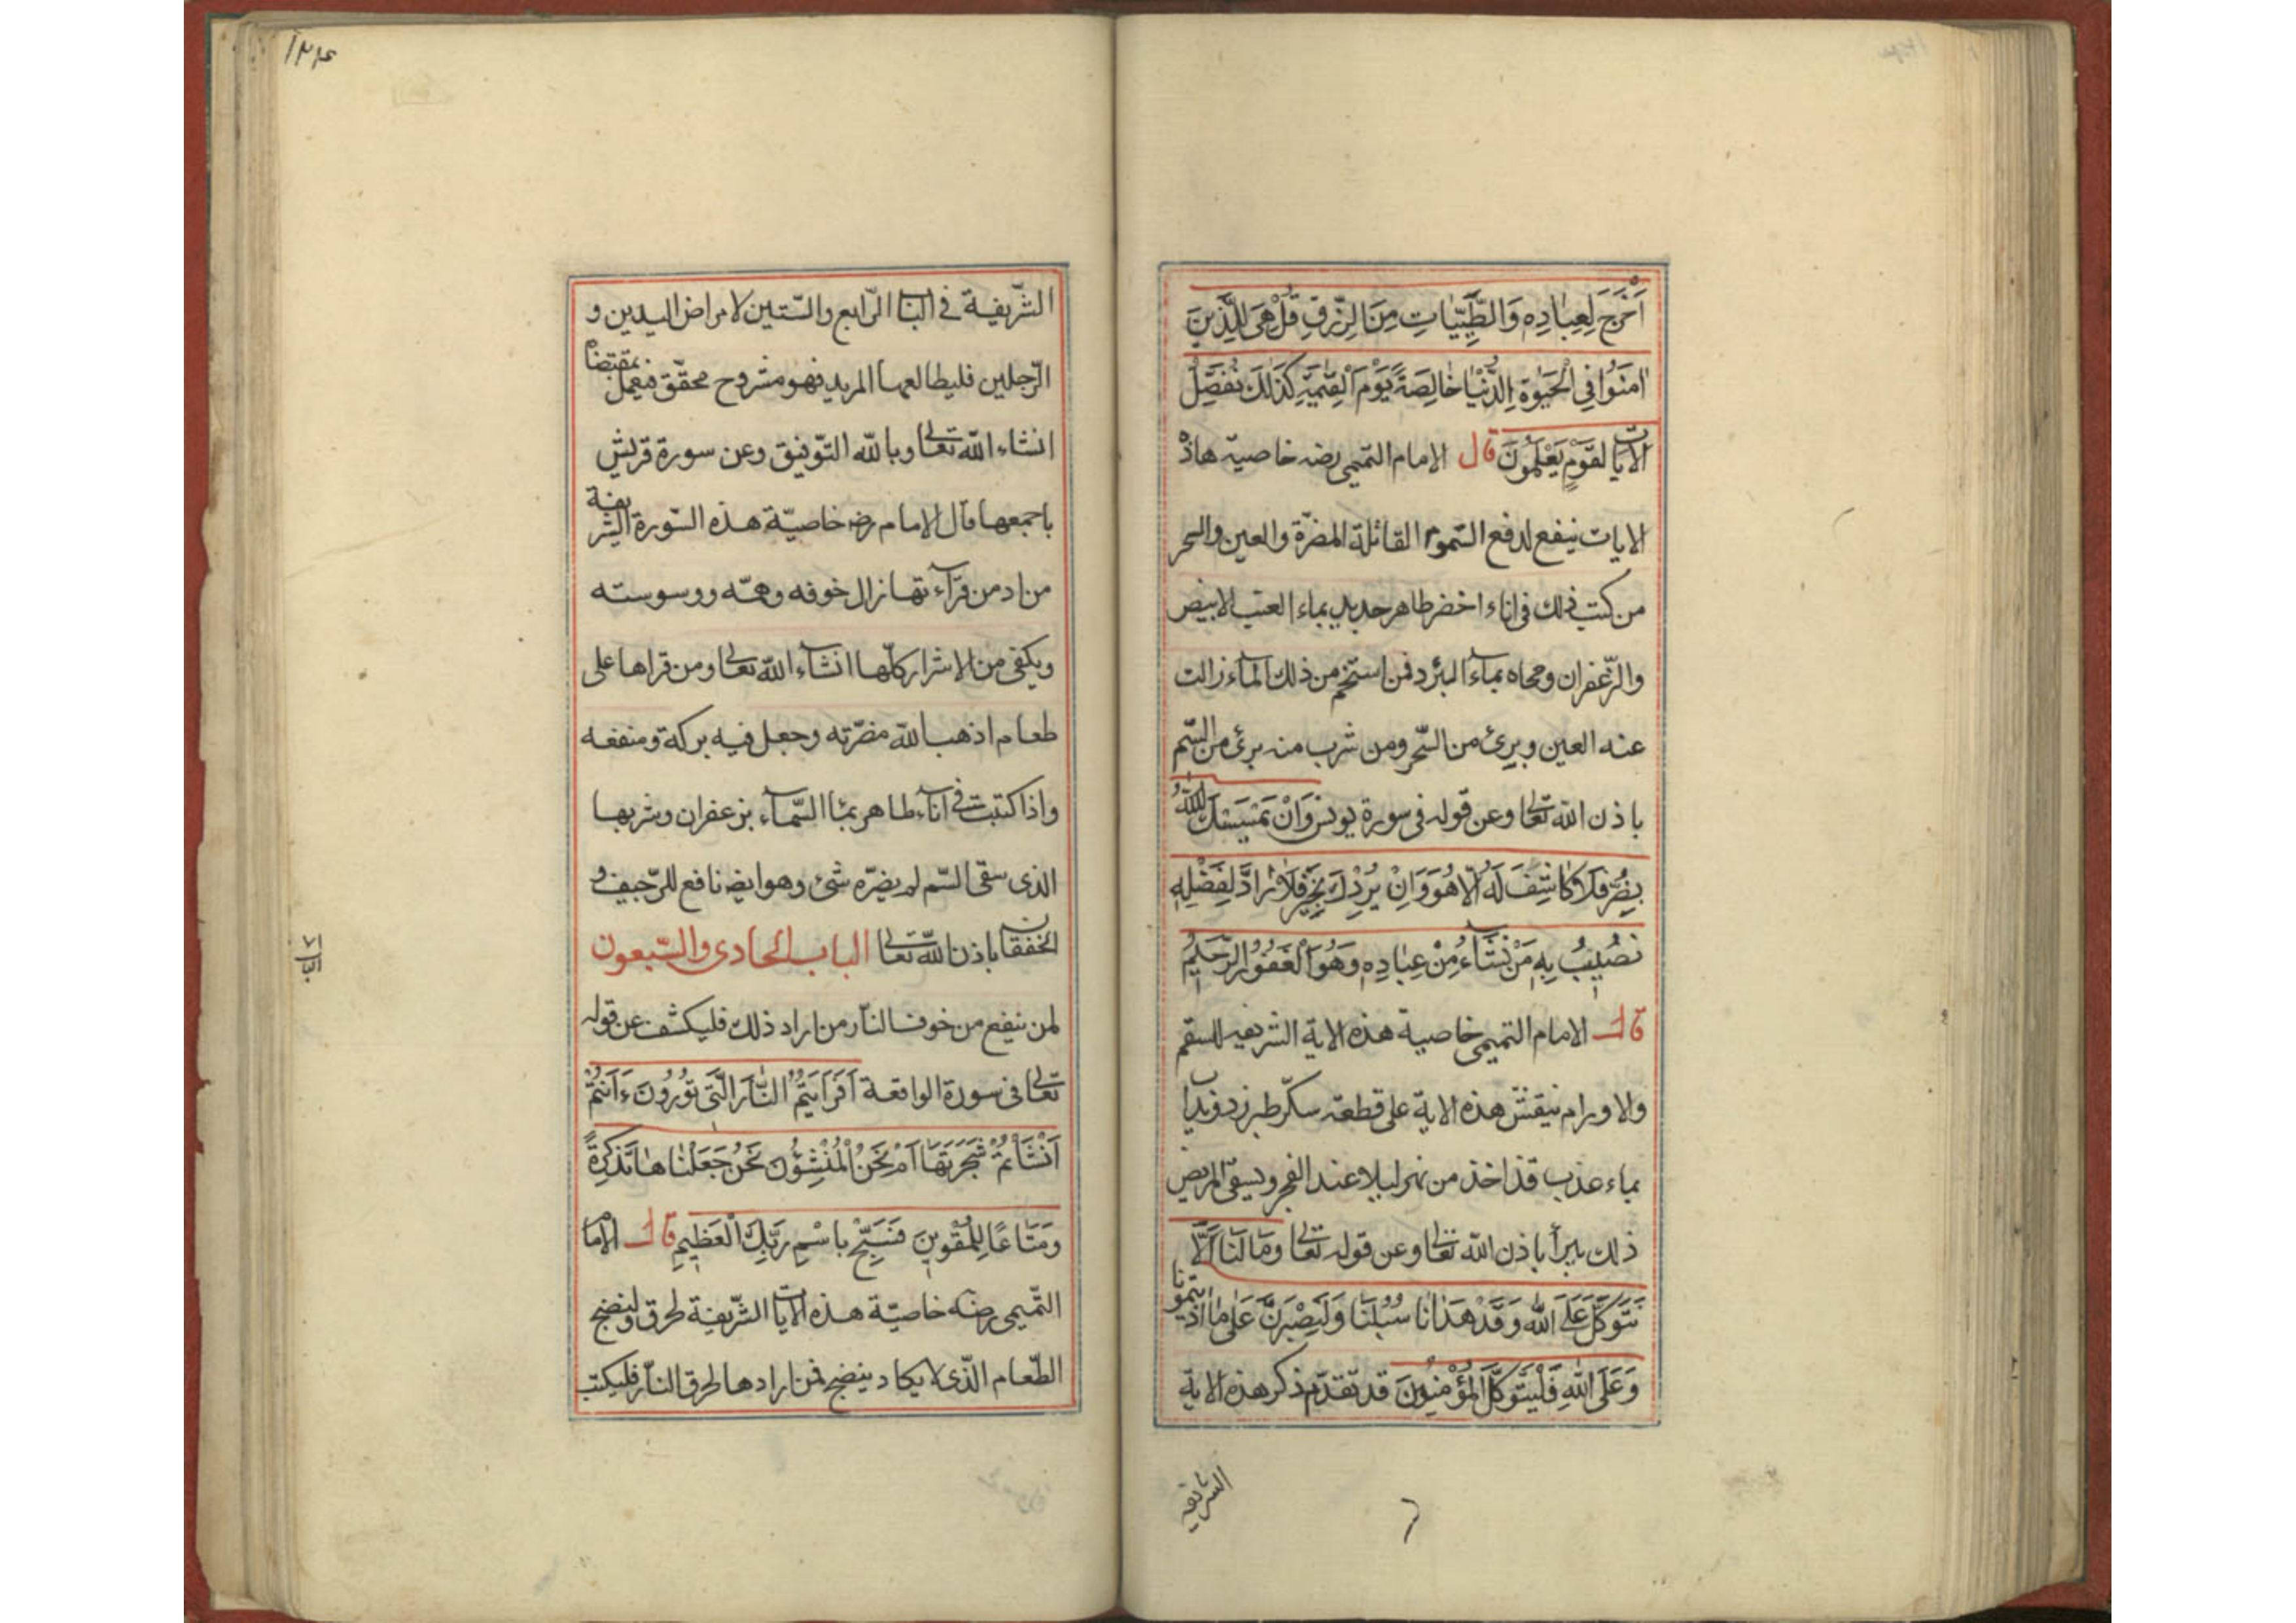 اَخْرَجَ لِعِبَادِهِ وَالطَّيِّبَاتِ مِنَ الرِّزْقِ قُلْ هِيَ لِلَّذِينَ
اٰمَنُوا فِي الْحَيٰوةِ الدُّنْيَا خَالِصَةً يَوْمَ الْقِيٰمَةِ كَذٰلِكَ نُفَصِّلُ
الْاٰيَاتِ لِقَوْمٍ يَعْلَمُونَ قال الامام التميمى رضه خاصيّة هاذه
الايات ينفع لدفع السّموم القاتلة المضرّة والعين والسحر
من كتب ذلك فى اناء اخضر طاهر جديد بماء العنب الابيض
والزّعفران ومحاه بماء البرد فمن استحم من ذلك الماء زالت
عنه العين وبرئ من السّحر ومن شرب منه برئ من السّم
باذن الله تعالى وعن قوله فى سورة يونس وَاِنْ يَمْسَسْكَ اللهُ
بِضُرٍّ فَلَا كَاشِفَ لَهُ اِلَّا هُوَ وَاِنْ يُرِدْكَ بِخَيْرٍ فَلَا رَادَّ لِفَضْلِهِ
نصيب بِهِ مَنْ نشَاءُ مِنْ عِبَادِهِ وَهُوَ الْغَفُورُ الرَّحِيمُ
قال الامام التميمى خاصية هذه الاية الشريفه للسقم
والاورام ينقش هذه الاية على قطعة سكّر طبرزد ويذاب
بماء عذب قد اخذ من نهر ليلا عند الفجر ويسقى المريض
ذلك يبرأ باذن الله تعالى وعن قوله تعالى وَمَا لَنَا اَلَّا
نَتَوَكَّلَ عَلَى اللهِ وَقَدْ هَدَانَا سُبُلَنَا وَلَنَصْبِرَنَّ عَلٰى مَا اٰذَيْتُمُونَا
وَعَلَى اللهِ فَلْيَتَوَكَّلِ الْمُؤْمِنُونَ قد تقدّم ذكر هذه الاية
الشريفه
١٣٤
الشّريفة فى الباب الرّابع والستّين لامراض اليدين و
الرّجلين فليطالعها المريد فهو مشروح محقّق فيعمل بمقتضاه
انشاء الله تعالى وبالله التّوفيق وعن سورة قريش
باجمعها قال الامام رضه خاصيّة هذه السّورة الشريفة
من ادمن قرآءتها زال خوفه وهمّه ووسوسته
ويكفى من الاشرار كلّها انشاء الله تعالى ومن قراها على
طعام اذهب الله مضرّته وجعل فيه بركة ومنفعه
واذا كتبت فى اناء طاهر بماء السّماء بزعفران وشربها
الذى سقى السّم لم يضرّه شئ وهو ايضه نافع للرّجيف و
الخفقان باذن الله تعالى الباب الحادى والسّبعون
لمن ينفع من خوف النّار من اراد ذلك فليكشف عن قوله
تعالى فى سورة الواقعة اَفَرَاَيْتُمُ النَّارَ الَّتِي تُورُونَ ءَاَنْتُمْ
اَنْشَأْتُمْ شَجَرَتَهَا اَمْ نَحْنُ الْمُنْشِؤُنَ نَحْنُ جَعَلْنَاهَا تَذْكِرَةً
وَمَتَاعًا لِلْمُقْوِينَ فَسَبِّحْ بِاسْمِ رَبِّكَ الْعَظِيمِ قال الامام
التّميمى رضه خاصيّة هذه الايات الشّريفة لحرق ولينضج
الطّعام الذّى لا يكاد ينضج فمن ارادها لحرق النّار فليكتب